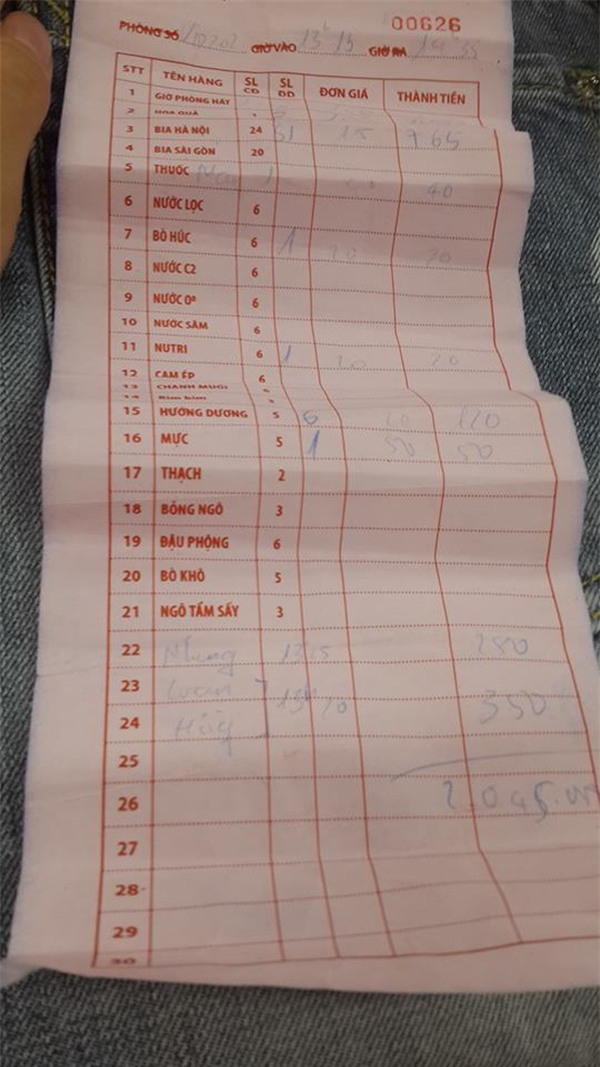 00626
PHÒNG SỐ P202 GIỜ VÀO 13h15 GIỜ RA 35
STT TÊN HÀNG SL CĐ SL DD ĐƠN GIÁ THÀNH TIỀN
1 GIỜ PHÒNG HÁT
2 HOA QUẢ
3 BIA HÀ NỘI 24 51 15 765
4 BIA SÀI GÒN 20
5 THUỐC 1 40
6 NƯỚC LỌC 6
7 BÒ HÚC 6 1 20 20
8 NƯỚC C2 6
9 NƯỚC 0º 6
10 NƯỚC SÂM 6
11 NUTRI 6 1 20 20
12 CAM ÉP 6
13 CHANH MUỐI
14 Bim bim
15 HƯỚNG DƯƠNG 5 6 20 120
16 MỰC 5 1 50 50
17 THẠCH 2
18 BỎNG NGÔ 3
19 ĐẬU PHỘNG 6
20 BÒ KHÔ 5
21 NGÔ TẨM SẤY 3
22 Nhung
23 Loan
24 350
25
26 2.045
27
28
29
30